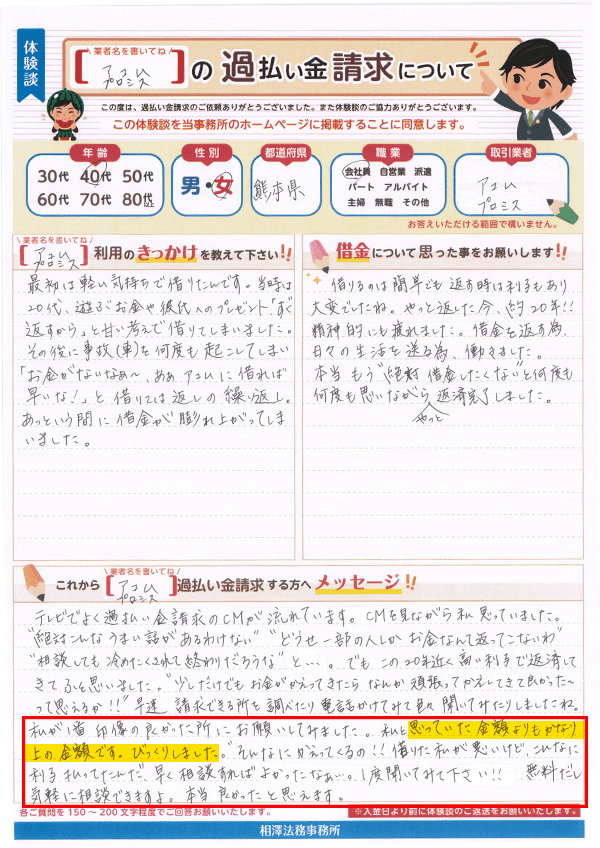 体験談
業者名を書いてね
[アコム プロミス]の過払い金請求について
この度は、過払い金請求のご依頼ありがとうございました。また体験談のご協力ありがとうございます。
この体験談を当事務所のホームページに掲載することに同意します。
年齢
30代 40代 50代
60代 70代 80代
性別
男・女
都道府県
熊本県
職業
会社員 自営業 派遣
パート アルバイト
主婦 無職 その他
取引業者
アコム
プロミス
お答えいただける範囲で構いません。
業者名を書いてね
[アコム プロミス]利用のきっかけを教えて下さい!!
最初は軽い気持ちで借りたんです。当時は
20代、遊ぶお金や彼氏へのプレゼント「すぐ
返すから」と甘い考えで借りてしまいました。
その後に事故(車)を何度も起こしてしまい
「お金がないなあ〜、ああ アコムに借れば
早いな!」と借りては返しの繰り返し。
あっという間に借金が膨れ上がってしま
いました。
借金について思った事をお願いします!!
借りるのは簡単でも返す時は利子もあり
大変でしたね。やっと返した今、約20年!!
精神的にも疲れました。借金を返す為、
日々の生活を送る為、働きました。
本当もう"絶対借金したくない"と何度も
何度も思いながらやっと返済完了しました。
業者名を書いてね
これから[アコム プロミス]過払い金請求する方へメッセージ!!
テレビでよく過払い金請求のCMが流れています。CMを見ながら私思っていました。
"絶対こんなうまい話があるわけない" "どうせ一部の人しかお金なんて返ってこないわ"
"相談しても冷めたくされて終わりだろうな"と…。でもこの20年近く高い利子で返済して
きてふと思いました。"少しだけでもお金がかえってきたらなんか頑張ってかえしてきて良かった〜
って思えるか!!"早速 請求できる所を調べたり電話かけてみて色々聞いてみたりしましたね。
私が1番印像の良かった所にお願いしてみました。私と思っていた金額よりもかなり
上の金額です。びっくりしました。"そんなにかえってくるの!!借りた私が悪いけど、こんなに
利子払ってたんだ"早く相談すればよかったなぁ…。1度聞いてみて下さい!! 無料だし
気軽に相談できますよ。本当良かったと思えます。
各ご質問を150〜200文字程度でご回答お願いいたします。
※入金日より前に体験談のご返送をお願いいたします。
相澤法務事務所